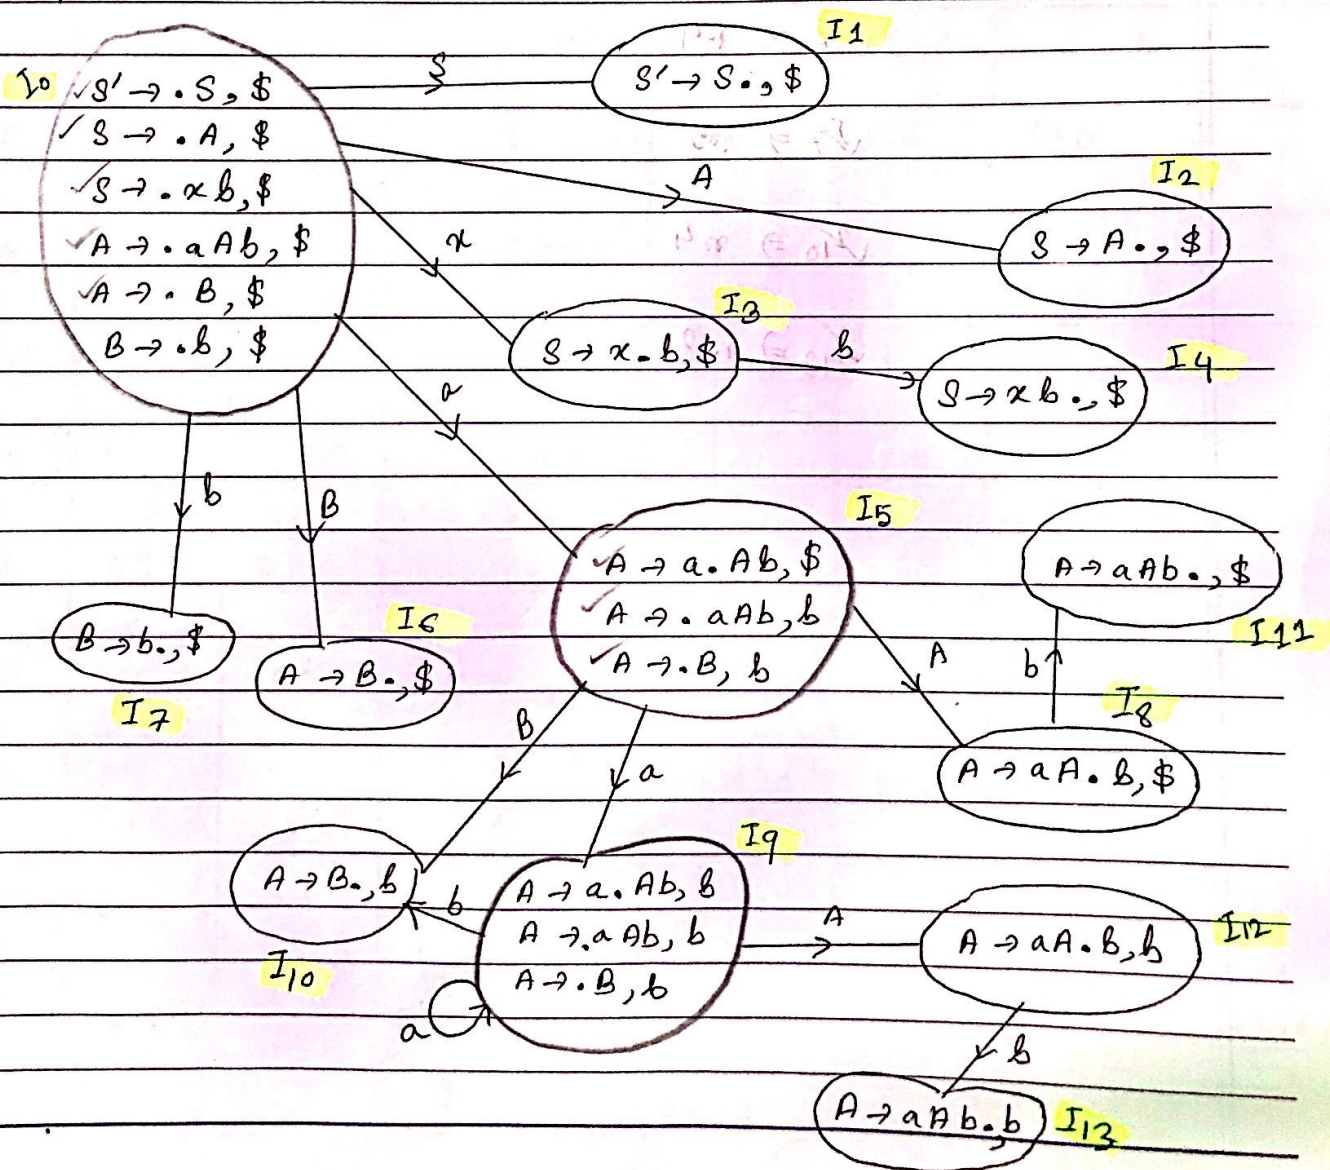 I1
I0
S' → . S, $
S → . A, $
S → . x b, $
A → . a A b, $
A → . B, $
B → . b, $
S
S' → S ., $
A
I2
S → A ., $
x
I3
S → x . b, $
b
I4
S → x b ., $
a
b
B
I5
A → a . A b, $
A → . a A b, b
A → . B, b
A → a A b ., $
I11
B → b ., $
I7
I6
A → B ., $
A
b
I8
A → a A . b, $
B
a
A → B ., b
I10
b
I9
A → a . A b, b
A → . a A b, b
A → . B, b
a
A
A → a A . b, b
I12
b
A → a A b ., b
I13